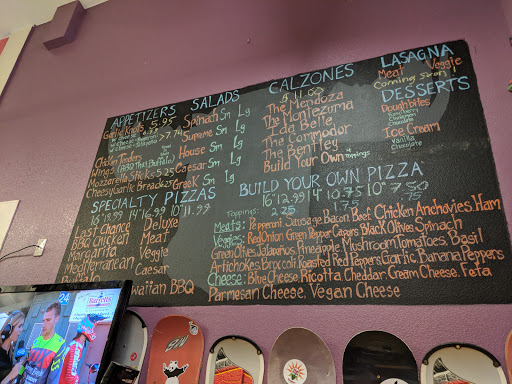 APPETIZERS
Garlic Knots 5.95
7.74
Chicken Tenders
Wings (BBQ Thai Buffalo)
Mozzarella Sticks 5.25
Cheesy Garlic Bread
SALADS
Spinach Sm Lg
Supreme Sm Lg
House Sm Lg
Caesar Sm Lg
Greek Sm Lg
CALZONES
The Mendoza
The Montezuma
Ida Belle
The Corridor
The Bentley
Build Your Own
toppings
LASAGNA
Meat Veggie
Coming Soon!
DESSERTS
Doughbites
Cinnamon
Chocolate
Ice Cream
Vanilla
Chocolate
SPECIALTY PIZZAS
16" 14" 16.99 10" 11.99
Last Chance Deluxe
BBQ Chicken Meat
Margarita Veggie
Mediterranean Caesar
Hawaiian BBQ
BUILD YOUR OWN PIZZA
16" 12.99 14" 10.75 10" 7.50
Toppings: 2.25 1.75 .75
Meats: Pepperoni Sausage Bacon Beef Chicken Anchovies Ham
Veggies: Red Onion Green Pepper Capers Black Olives Spinach
Green Olives Jalapeños Pineapple Mushroom Tomatoes Basil
Artichokes Broccoli Roasted Red Peppers Garlic Banana Peppers
Cheese: Blue Cheese Ricotta Cheddar Cream Cheese Feta
Parmesan Cheese, Vegan Cheese
24